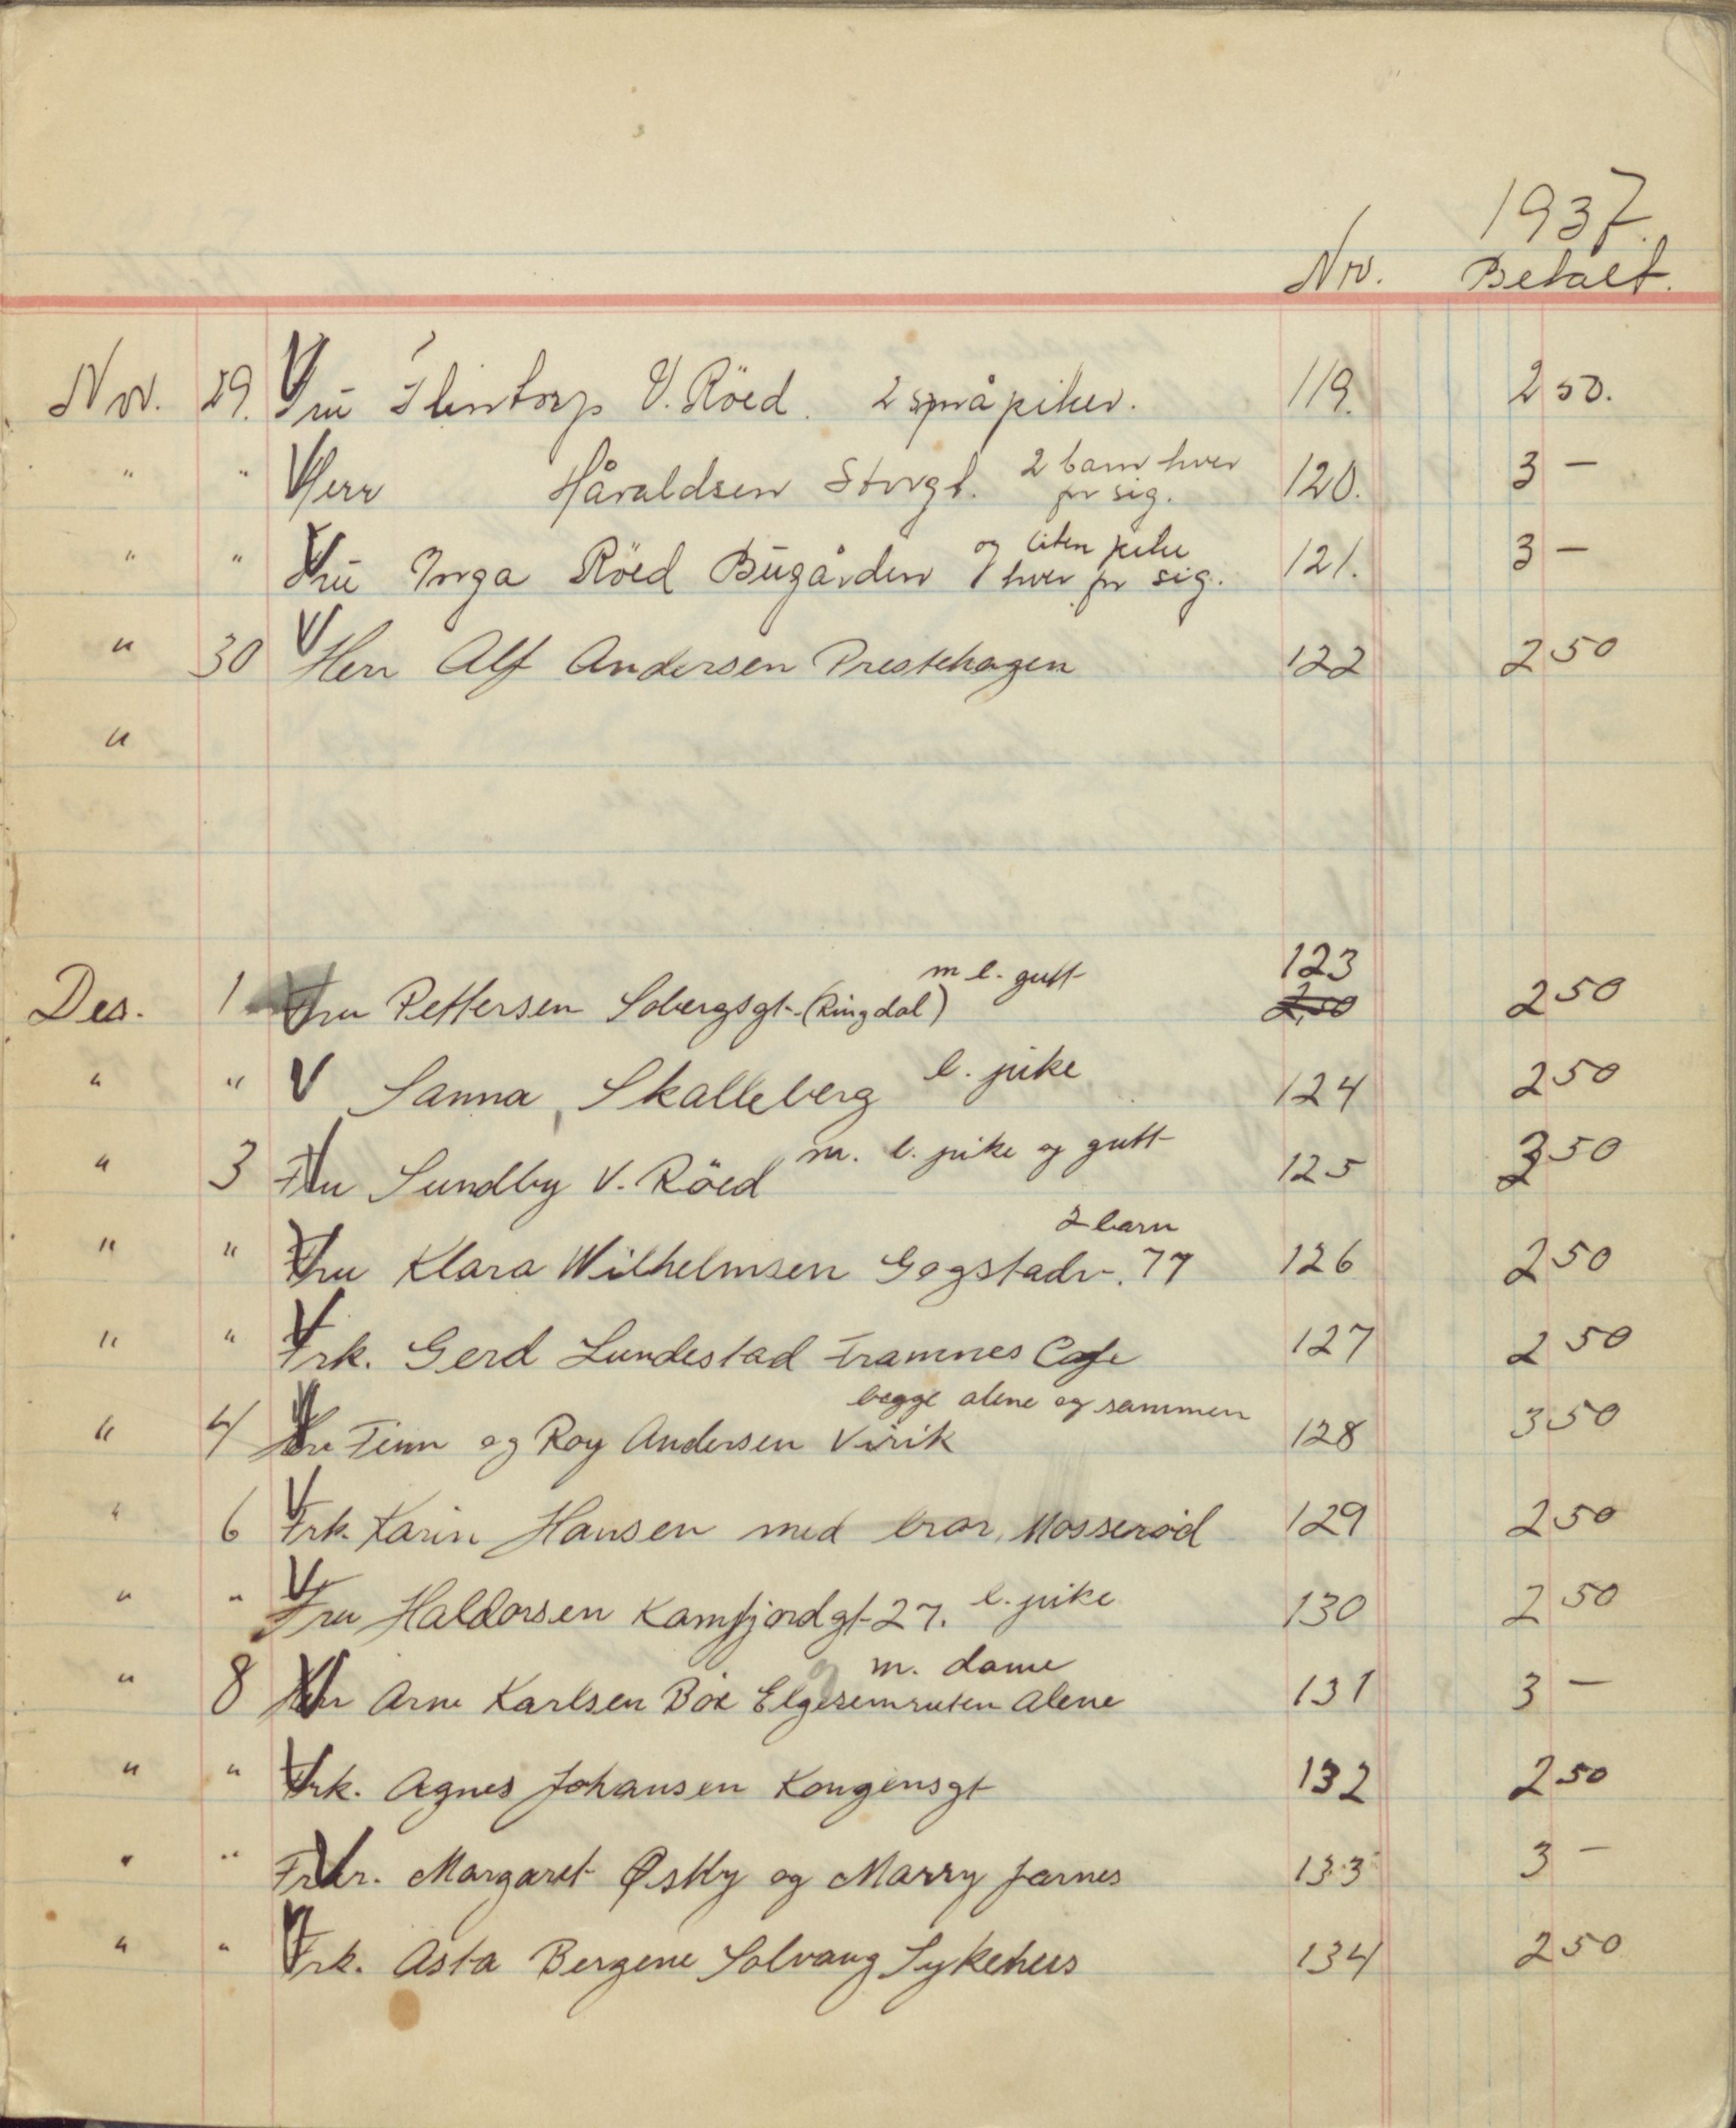 1937.
Nr. Betalt.
Nov. 29. V Fru Flintorp V. Röed. 2 små piker. 119. 2 50.
" " V Herr Håraldsen Storgt. 2 barn hver for sig. 120. 3 —
" " V Fru Inga Röed Bugården og liten pike hver for sig. 121. 3 —
" 30 V Herr Alf Andersen Prestehagen 122 2 50
"
Des. 1 V Fru Pettersen Sobergsgt. (Ringdal) m l. gutt 123 2,50 2 50
" " V Sanna Skalleberg l. pike 124 2 50
" 3 V Fru Sundby V. Röed m. l. pike og gutt 125 3 50
" " V Fru Klara Wilhelmsen Gogstadv. 77 2 barn 126 2 50
" " V Frk. Gerd Lundestad Framnes Cafe 127 2 50
" 4 V Herr Finn og Roy Andersen Virik begge alene og sammen 128 3 50
" 6 V Frk. Karin Hansen med bror, Mosserød 129 2 50
" " V Fru Haldorsen Kamfjordgt 27. l. pike 130 2 50
" 8 V Herr Arne Karlsen Bøe Elgesemruten m. dame alene 131 3 —
" " V Frk. Agnes Johansen Kongensgt 132 2 50
" " V Frkr. Margaret Østby og Marry Jarnes 133 3 —
" " V Frk. Asta Bergene Solvang Sykehus 134 2 50